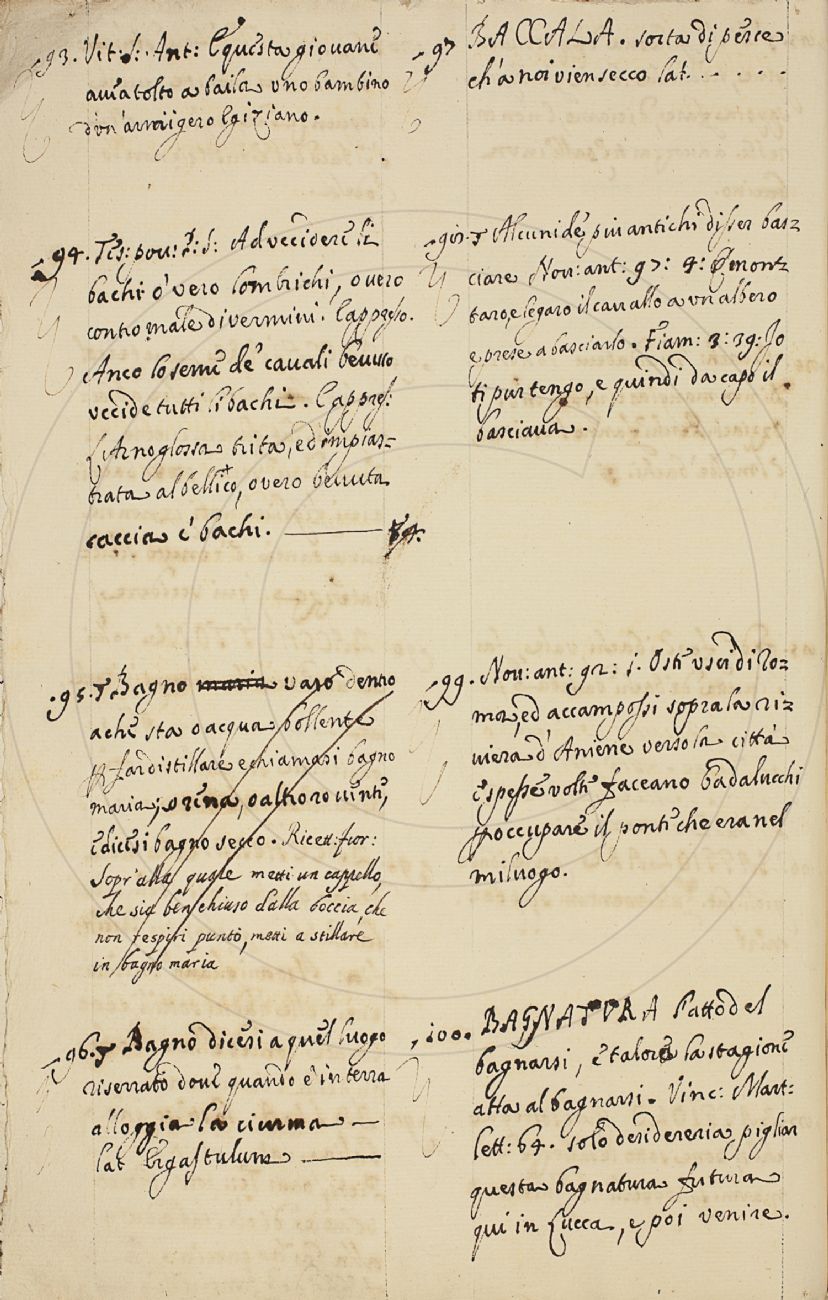 93. Vit: S: Ant: E questa giovane
avea tolto a baila uno bambino
d'un' armigero Egiziano.
94. Tes: pov: P: S: Ad uccidere li
bachi o' vero lombrichi, overo
contro male di vermini. E appresso.
Anco lo seme de' cavoli bevuto
uccide tutti li bachi. E appres:
L'Arnoglossa trita, ed impias-
trata al bellico, overo bevuta
caccia i bachi.
95. Bagno maria vaso dentro
a che sta o acqua bollente
p far distillare e chiamasi bagno
maria; o rena, o altro roventi,
e dicesi bagno secco. Ricett: fior:
Sopr'alla quale metti un cappello,
che sia ben chiuso dalla boccia, che
non respiri punto, metti a stillare
in bagno maria
96. Bagno dicesi a quel luogo
riserrato dove quando è in terra
alloggia la ciurma
lat Ergastulum
97 BACCALA. sorta di pesce
ch'a noi vien secco lat. . . . .
98. Alcuni de' piu antichi disser bas-
ciare Nov: ant: 97: 4: E smont-
taro, e legaro il cavallo a un albero
e prese a basciarlo. Fiam: 3: 39: Io
ti pur tengo, e quindi da capo il
basciava.
99. Nov: ant: 92: 1. Oste uscì di Ro-
ma, ed accampossi sopra la ri-
viera d'Aniene verso la città
e spesse volte faceano badalucchi
p occupare il ponte che era nel
miluogo.
100. BAGNATURA l'atto del
bagnarsi, e talora la stagione
atta al bagnarsi. Vinc: Mart:
lett: 64. solo desidereria pigliar
questa bagnatura futura
qui in Lucca, e poi venire.